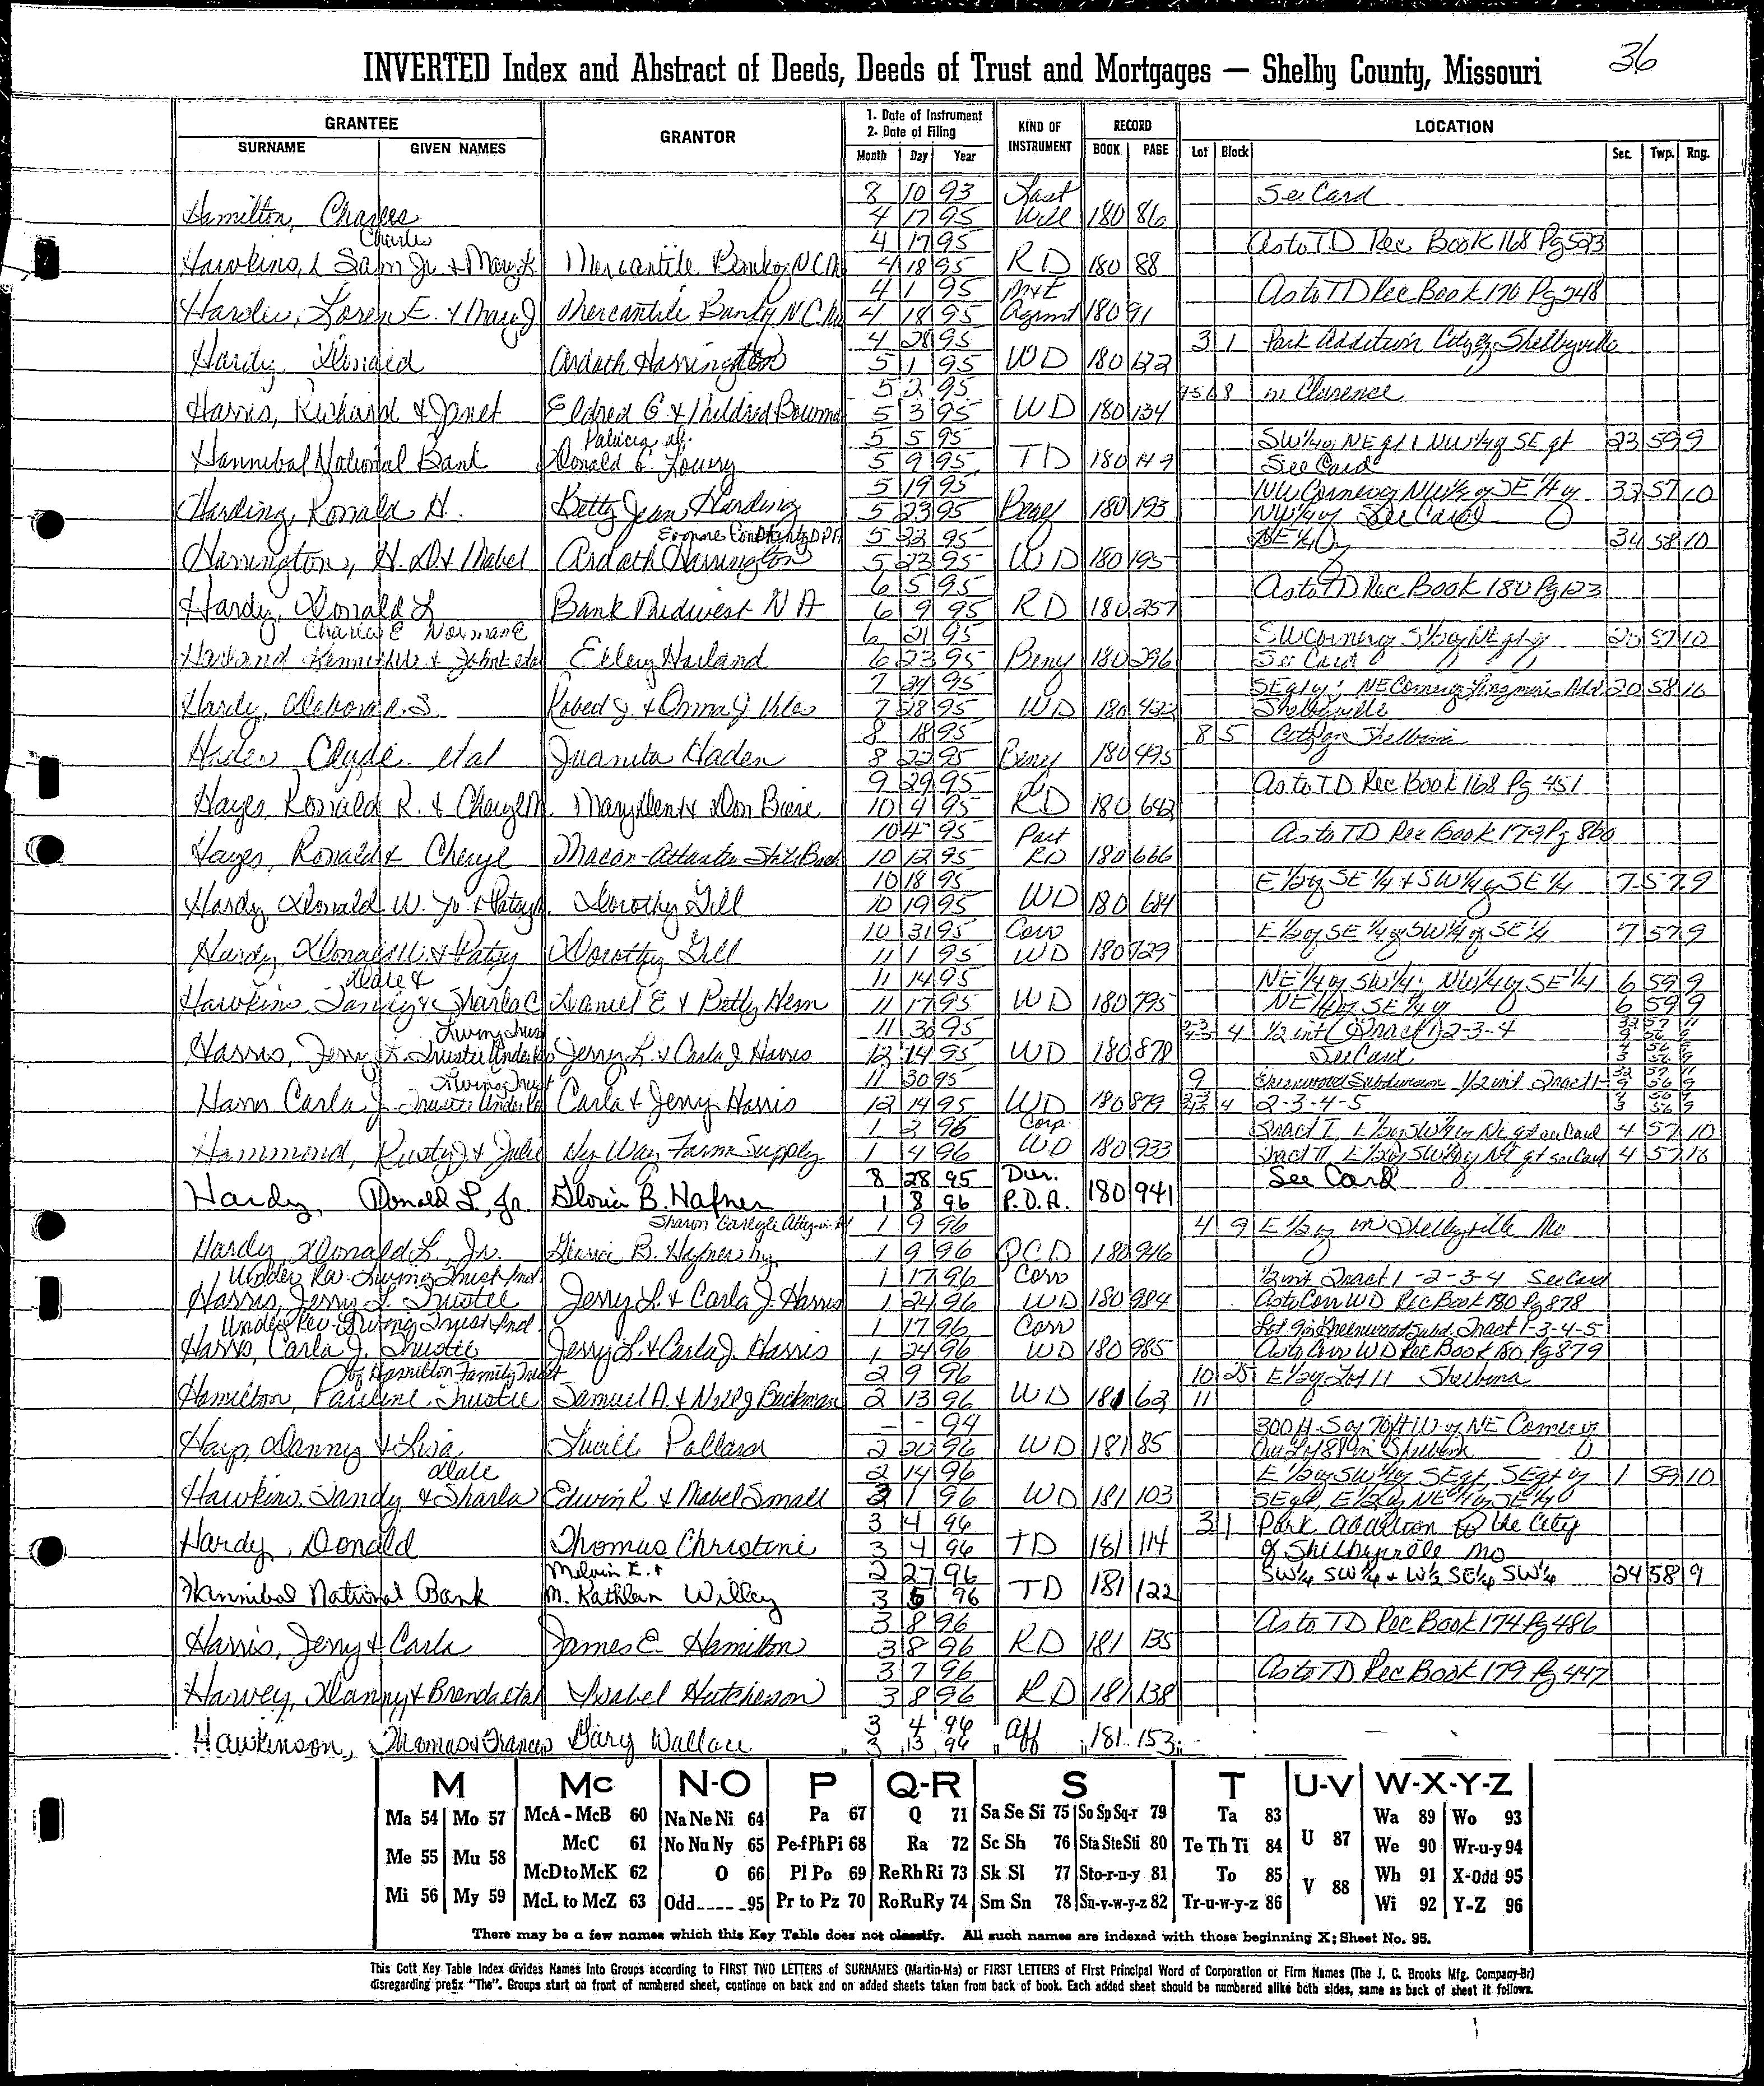 36
INVERTED Index and Abstract of Deeds, Deeds of Trust and Mortgages — Shelby County, Missouri
GRANTEE
SURNAME GIVEN NAMES
GRANTOR
1. Date of Instrument
2. Date of Filing
Month Day Year
KIND OF INSTRUMENT
RECORD
BOOK PAGE
LOCATION
Lot Block Sec. Twp. Rng.
8 10 93 Last See Card
Hamilton, Charles 4 17 95 Will 180 86
Charles 4 17 95 As to TD Rec Book 168 Pg 593
Hawkins, Sam Jr. & Mary Mercantile Bank of NCM 4 18 95 RD 180 88
4 1 95 As to TD Rec Book 170 Pg 248
Loren E. & Mary J Mercantile Bank of NCM 4 18 95 Agrmt 180 91
4 28 95 3 1 Park Addition City of Shelbyville
Hardy, Donald Ardath Harrington 5 1 95 WD 180 122
5 2 95 4568 in Clarence
Harris, Richard & Janet Eldred G. & Mildred Bowman 5 3 95 WD 180 134
Patricia 5 5 95 SW 1/4 of NE qt & NW 1/4 of SE qt 23 59 9
Hannibal National Bank Donald E. Lowry 5 9 95 TD 180 149 See Card
5 19 95 NW Corner of NW 1/2 of SE 1/4 of 33 57 10
Harding, Ronald H. Betty Jean Harding 5 23 95 Beny 180 193 NW 1/4 of See Card
5 22 95 NE 1/4 of 34 58 10
Harrington, H. D. & Mabel Ardath Harrington 5 23 95 WD 180 195
6 5 95 As to TD Rec Book 180 Pg 123
Hardy, Donald L Bank Midwest N A 6 9 95 RD 180 257
Charles E Norman E 6 21 95 SW Corner of S 1/2 of NE qt of 57 10
Harland Kenneth & John etal Ellery Harland 6 23 95 Beny 180 296 See Card
7 24 95 SE qt of; NE Corner of Add 20 58 10
Hardy, Deborah S Robert J. & Donna J 7 28 95 WD 180 422 Shelbyville
8 18 95 8 5 City of Shelbina
Haden Clyde etal Juanita Haden 8 22 95 Beny 180 495
9 29 95 As to TD Rec Book 168 Pg 451
Hayes Ronald R. & Cheryl M. Mary Den & Don Biere 10 4 95 RD 180 642
10 4 95 Part As to TD Rec Book 179 Pg 860
Hayes, Ronald & Cheryl Macon-Atlanta State Bank 10 12 95 RD 180 666
10 18 95 E 1/2 of SE 1/4 & SW 1/4 of SE 1/4 7 57 9
Hardy Donald W. Jr. & Patsy Dorothy Gill 10 19 95 WD 180 684
10 31 95 Corr E 1/2 of SE 1/4 of SW 1/4 of SE 1/4 7 57 9
Hardy, Donald W. & Patsy Dorothy Gill 11 1 95 WD 180 729
Dale & 11 14 95 NE 1/4 of SW 1/4; NW 1/4 of SE 1/4 6 59 9
Hawkins Sandy & Sharla C Daniel E & Betty Hern 11 17 95 WD 180 795 NE 1/4 of SE 1/4 of 6 59 9
Living Trust 11 30 95 4 1/2 int (Tract 1) 2-3-4
Harris, Jerry L. Trustee Under Rev Jerry L. & Carla J Harris 12 14 95 WD 180 878 See Card
Living Trust 11 30 95 9 Greenwood Subdivision 1/2 int Tract 1-
Harris Carla J. Trustee Under Rev Carla & Jerry Harris 12 14 95 WD 180 879 4 2-3-4-5
1 2 96 Corp. Tract I E 1/2 of SW 1/4 of NE qt see Card 4 57 10
Hammond, Rusty J & Julie Hy Way Farm Supply 1 4 96 WD 180 933 Tract II E 1/2 of SW 1/4 of NE qt see Card 4 57 10
8 28 95 Dur. See Card
Hardy, Donald L., Jr. Gloria B. Hafner 1 8 96 P.O.A. 180 941
Sharon Carlyle Atty-in- 1 9 96 4 9 E 1/2 of in Shelbyville Mo
Hardy, Donald L. Jr. Gloria B. Hafner by 1 9 96 QCD 180 946
Under Rev. Living Trust Ind 1 17 96 Corr 1/2 int Tract 1-2-3-4 See Card
Harris, Jerry L. Trustee Jerry L. & Carla J. Harris 1 24 96 WD 180 984 As to Corr WD Rec Book 180 Pg 878
Under Rev. Living Trust Ind. 1 17 96 Corr Lot 9 in Greenwood Subd. Tract 1-3-4-5
Harris, Carla J. Trustee Jerry L. & Carla J. Harris 1 24 96 WD 180 985 As to Corr WD Rec Book 180 Pg 879
of Hamilton Family Trust 2 9 96 10 25 E 1/2 of Lot 11 Shelbina
Hamilton, Pauline Trustee Samuel A. & Nelly Buckman 2 13 96 WD 181 62 11
- - 94 300 ft S of 70 ft W of NE Corner of
Harp, Danny & Lisa Lucille Pollard 2 20 96 WD 181 85 Out Lot 88 in Shelbina
Dale 2 14 96 E 1/2 of SW 1/4 of SE qt, SE qt of 1 59 10
Hawkins, Sandy & Sharla Edwin R. & Mabel Small 3 1 96 WD 181 103 SE qt, E 1/2 of NE 1/4 of SE 1/4
3 4 96 3 1 Park Addition to the City
Hardy, Donald Thomas Christine 3 4 96 TD 181 114 of Shelbyville Mo
Melvin E. & 2 27 96 SW 1/4 SW 1/4 & W 1/2 SE 1/4 SW 1/4 24 58 9
Hannibal National Bank M. Kathleen Willey 3 6 96 TD 181 122
3 8 96 As to TD Rec Book 174 Pg 486
Harris, Jerry & Carla James E. Hamilton 3 8 96 RD 181 135
3 7 96 As to TD Rec Book 179 Pg 447
Harvey, Danny & Brenda etal Isabel Hutcheson 3 8 96 RD 181 138
3 4 96
Hawkinson, Thomas & Frances Gary Wallace 3 13 96 Aff 181 153
M Mc N-O P Q-R S T U-V W-X-Y-Z
Ma 54 Mo 57 McA - McB 60 Na Ne Ni 64 Pa 67 Q 71 Sa Se Si 75 So Sp Sq-r 79 Ta 83 Wa 89 Wo 93
McC 61 No Nu Ny 65 Pe-f Ph Pi 68 Ra 72 Sc Sh 76 Sta Ste Sti 80 Te Th Ti 84 U 87 We 90 Wr-u-y 94
Me 55 Mu 58 McD to McK 62 O 66 Pl Po 69 Re Rh Ri 73 Sk Sl 77 Sto-r-u-y 81 To 85 V 88 Wh 91 X-Odd 95
Mi 56 My 59 McL to McZ 63 Odd---- -95 Pr to Pz 70 Ro Ru Ry 74 Sm Sn 78 Su-v-w-y-z 82 Tr-u-w-y-z 86 Wi 92 Y-Z 96
There may be a few names which this Key Table does not classify. All such names are indexed with those beginning X; Sheet No. 95.
This Cott Key Table Index divides Names Into Groups according to FIRST TWO LETTERS of SURNAMES (Martin-Ma) or FIRST LETTERS of First Principal Word of Corporation or Firm Names (The J. C. Brooks Mfg. Company-Br)
disregarding prefix "The". Groups start on front of numbered sheet, continue on back and on added sheets taken from back of book. Each added sheet should be numbered alike both sides, same as back of sheet it follows.